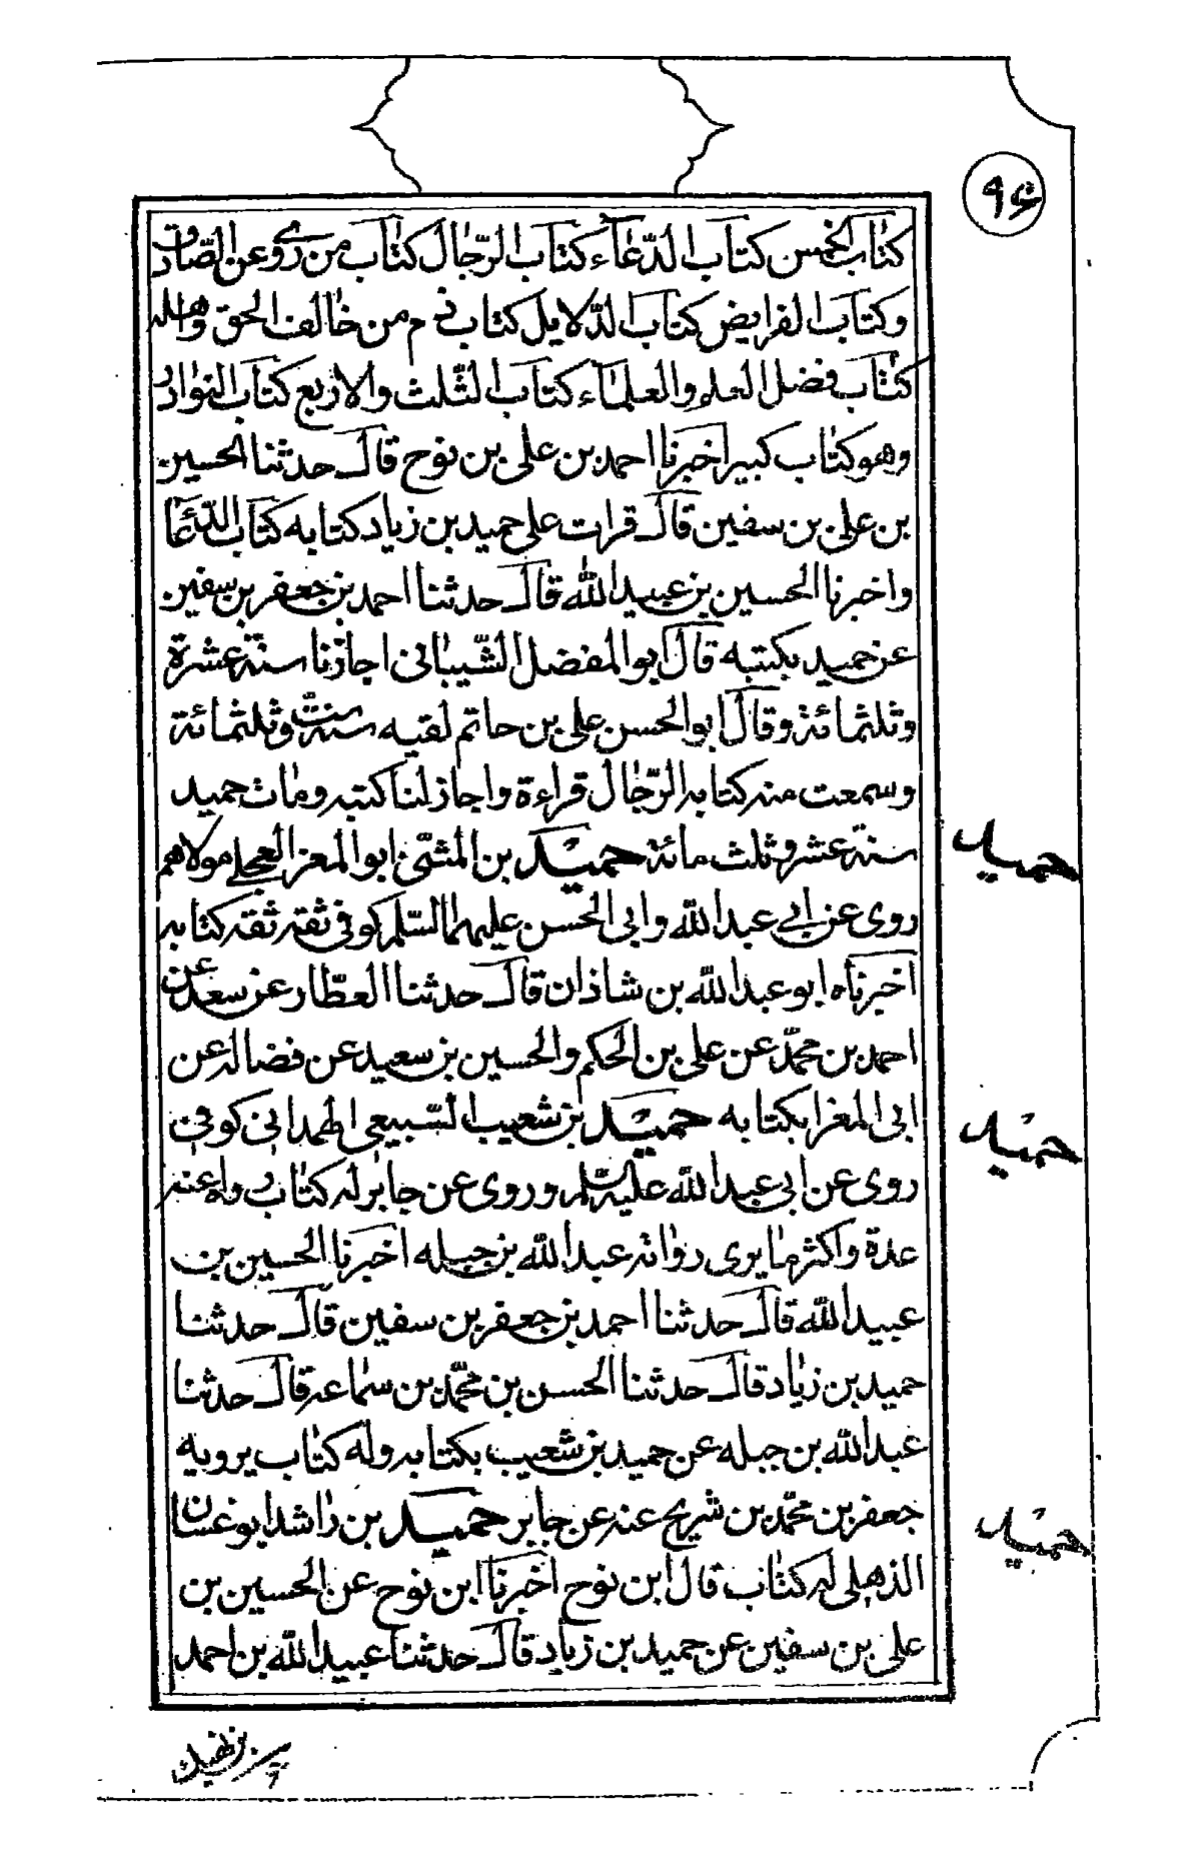 ٩٤
كتاب الخمس كتاب الدّعاء كتاب الرّجال كتاب من روى عن الصّادق
وكتاب الفرايض كتاب الدّلايل كتاب ذم من خالف الحق واهله
كتاب فضل العلم والعلماء كتاب الثّلث والاربع كتاب النوادر
وهو كتاب كبير اخبرنا احمد بن على بن نوح قال حدثنا الحسين
بن على بن سفين قال قرات على حميد بن زياد كتابه كتاب الدّعا
واخبرنا الحسين بن عبيد الله قال حدثنا احمد بن جعفر بن سفين
عن حميد بكتبه قال ابو المفضل الشّيبانى اجازنا سنة عشرة
وثلثمائة وقال ابو الحسن على بن حاتم لقيه سنة ستّ وثلثمائة
وسمعت منه كتابه الرّجال قراءة واجاز لنا كتبه ومات حميد
سنة عشر وثلث مائة حميد بن المثنّى ابو المعزا العجلى مولاهم
روى عن ابي عبد الله وابى الحسن عليهما السّلم كوفى ثقة ثقه كتابه
اخبرناه ابو عبد الله بن شاذان قال حدثنا العطّار عن سعد عن
احمد بن محمّد عن على بن الحكم والحسين بن سعيد عن فضاله عن
ابى المغرا بكتابه حميد بن شعيب السّبيعى الهمدانى كوفى
روى عن ابى عبد الله عليه السّلم وروى عن جابر له كتاب رواه عنه
عدة واكثر ما يروى رواته عبد الله بن جبله اخبرنا الحسين بن
عبيد الله قال حدثنا احمد بن جعفر بن سفين قال حدثنا
حميد بن زياد قال حدثنا الحسن بن محمّد بن سماعه قال حدثنا
عبد الله بن جبله عن حميد بن شعيب بكتابه وله كتاب يرويه
جعفر بن محمّد بن شريح عنه عن جابر حميد بن راشد ابو غسان
الذهلى له كتاب قال ابن نوح اخبرنا ابن نوح عن الحسين بن
على بن سفين عن حميد بن زياد قال حدثنا عبيد الله بن احمد
حميد
حميد
حميد
بن نهيك